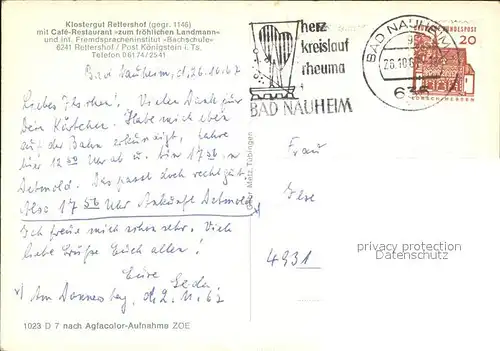 Klostergut Rettershof (gegr. 1146)
mit Café-Restaurant »zum fröhlichen Landmann«
und int. Fremdspracheninstitut »Bachschule«
6241 Rettershof / Post Königstein i. Ts.
Telefon 06174/2541
Bad Nauheim, d. 26.10.67
Liebes Ilschen! Vielen Dank für
Dein Kärtchen. Habe mich eben
auf der Bahn erkundigt, fahre
hier 12 50 Uhr ab u. bin 17 56 in
Detmold. Das passt doch recht gut
Also 17 56 Uhr Ankunft Detmold x)
Ich freue mich schon sehr. Viele
liebe Grüße Euch allen!
Eure
x) Am Donnerstag, d. 2.11.67
1023 D 7 nach Agfacolor-Aufnahme ZOE
Gebr. Metz, Tübingen
herz
kreislauf
rheuma
BAD NAUHEIM
BAD NAUHEIM
26.10.6
635
BUNDESPOST
20
LORSCH/HESSEN
Frau
Ilse
4931
privacy protection
Datenschutz